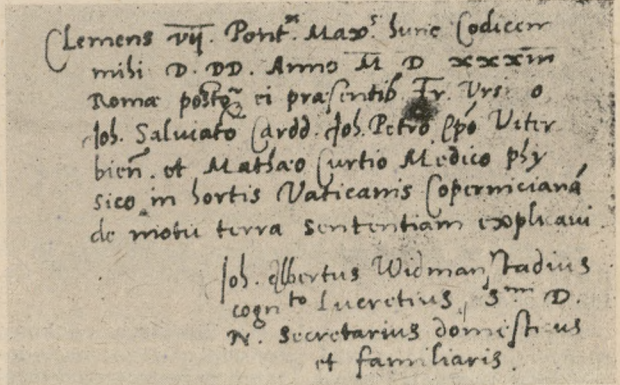 Clemens VII. Pont. Maxs hunc Codicem
mihi D. DD. Anno M D XXXIII
Romæ postq ei præsentib Fr. Urs o
Joh. Salviato Cardd. Joh. Petro Epō Viter
bien̄. et Mathæo Curtio Medico phy
sico in hortis Vaticanis Copernicianā
de motu terra sententiam explicavi
Joh. Albertus Widmanstadius
cognto Lucretius, Smi D.
N. secretarius domesticus
et familiaris.